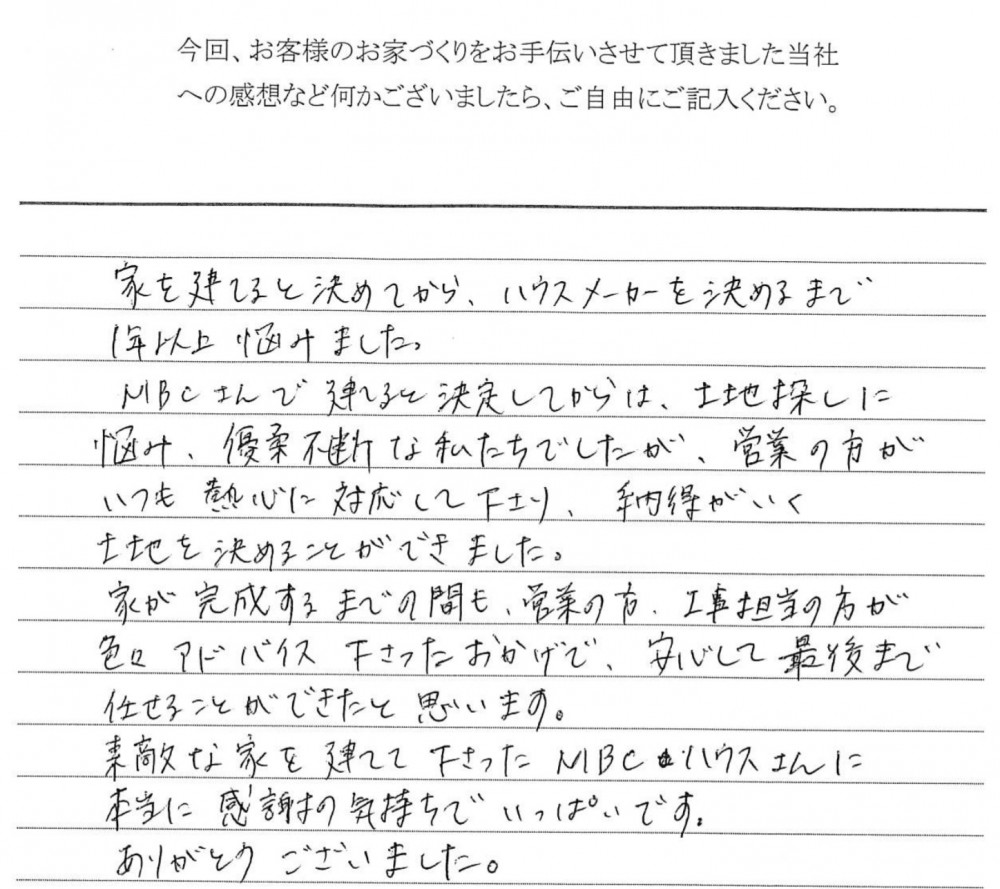 今回、お客様のお家づくりをお手伝いさせて頂きました当社
への感想など何かございましたら、ご自由にご記入ください。
家を建てると決めてから、ハウスメーカーを決めるまで
1年以上 悩みました。
MBCさんで 建てると決定してからは、土地探しに
悩み、優柔不断な私たちでしたが、営業の方が
いつも 熱心に対応して下さり、納得がいく
土地を決めることができました。
家が完成するまでの間も、営業の方、工事担当の方が
色々アドバイス下さったおかげで、安心して最後まで
任せることができたと思います。
素敵な家を建てて下さったMBCハウスさんに
本当に感謝の気持ちでいっぱいです。
ありがとうございました。